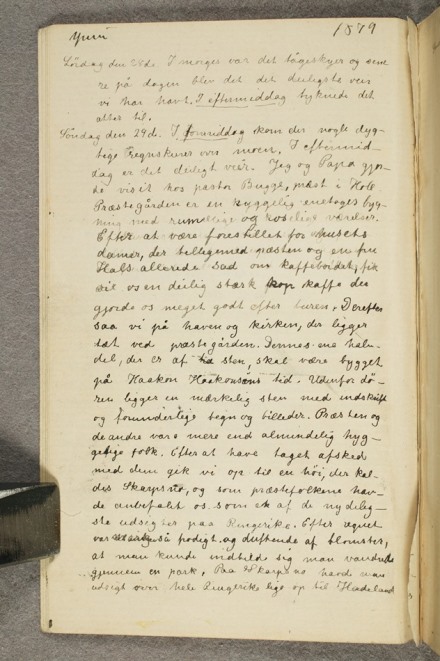 Juni 1879
Lördag den 28de. I morges var det tågeskyer og sene
re på dagen blev det det deiligste veir
vi har havt. I eftermiddag tyknede det
atter til.
Söndag den 29d. I formiddag kom der nogle dyg-
tige Regnskurer over moen. I eftermid-
dag er det deiligt veir. Jeg og Papa gjor-
de visit hos pastor Bugge, præst i Hole
Præstegården er en hyggelig enetages byg-
ning med rummelige og koselige værelser.
Efter at være forestillet for husets
damer, der tilligemed præsten og en fru
Hals allerede sad om kaffebordet, fik
vi os en deilig stærk kop kaffe der
gjorde os meget godt efter turen. Derefter
saa vi på haven og kirken, der ligger
tæt ved præstegården. Dennes ene halv-
del, der er af sten, skal være bygget
på Haakon Haakonsöns tid. Udenfor dö-
ren ligger en mærkelig sten med indskrift
og forunderlige tegn og billeder. Præsten og
de andre vare mere end almindelig hyg-
gelige folk. Efter at have taget afsked
med dem gik vi op til en höi, der kal-
des Skarpsno, og som præstefolkene hav-
de anbefalet os som en af de nydelig-
ste udsigter paa Ringerike. Efter regnet
var så frodigt og duftende af blomster,
at man kunde indbilde sig man vandrede
gjennem en park. Paa Skarpsno havde man
udsigt over hele Ringerike lige op til Hadeland